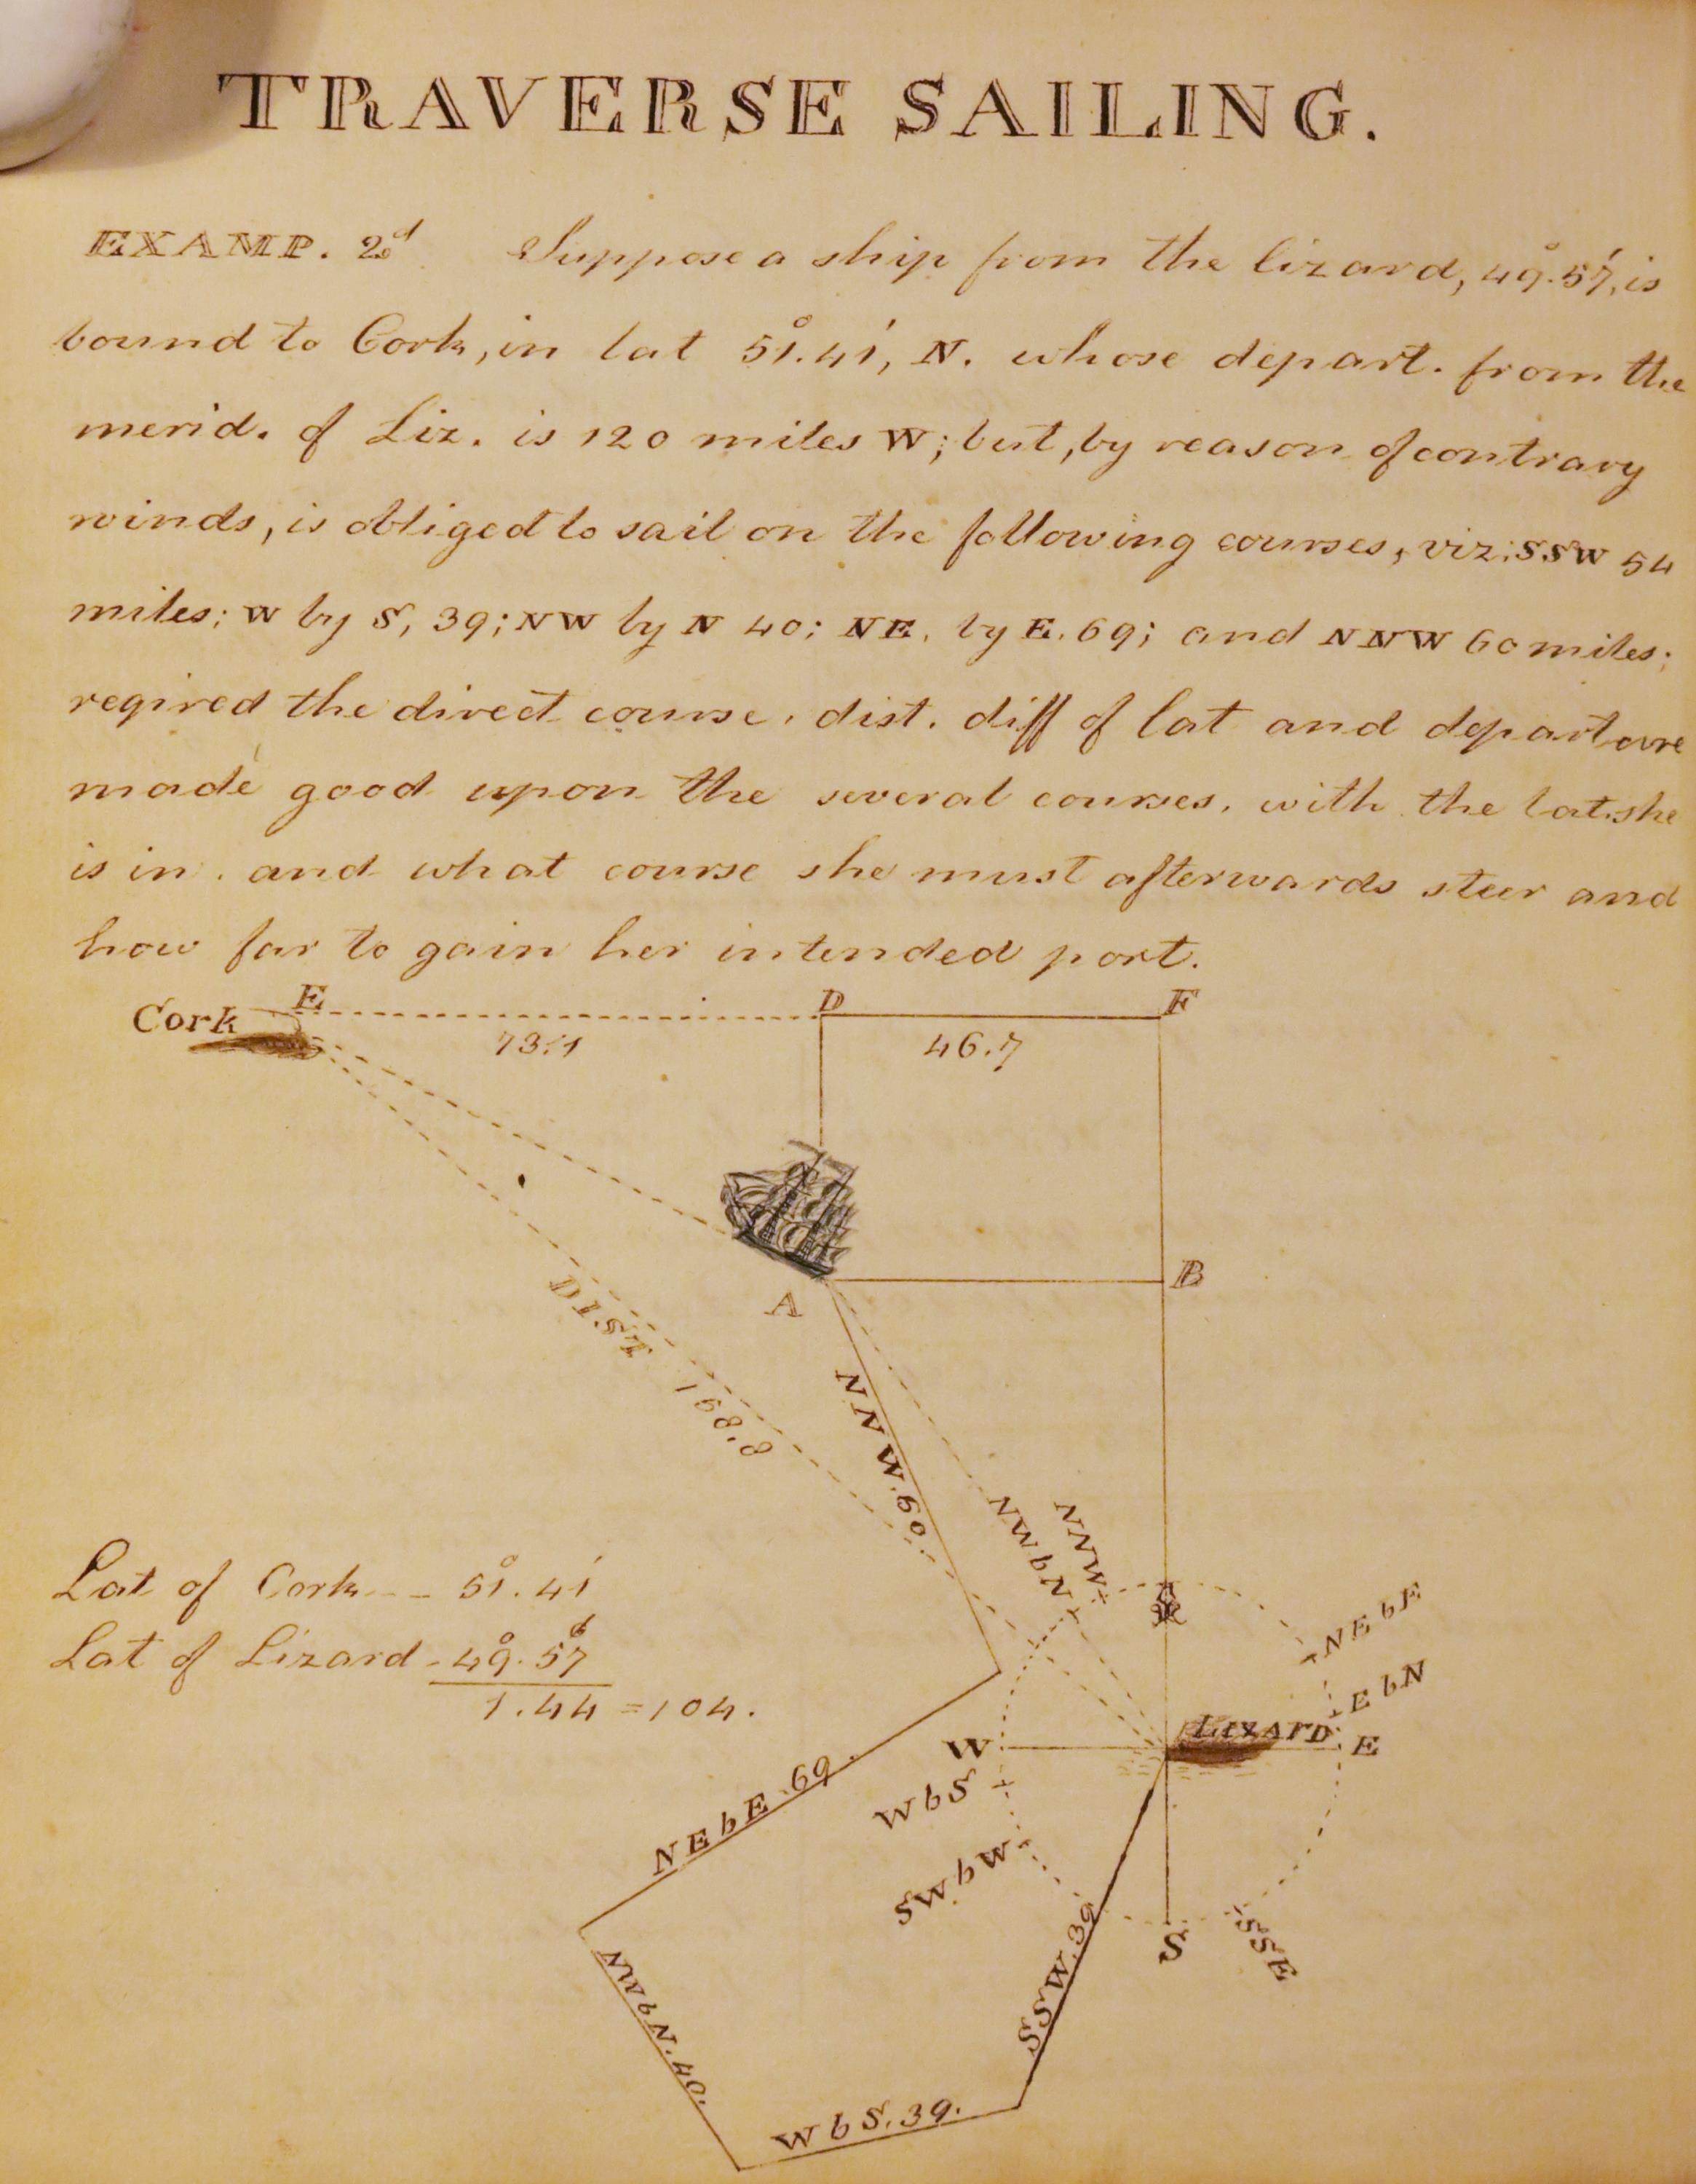 TRAVERSE SAILING.
EXAMP. 2d Suppose a ship from the lizard, 49°.57', is
bound to Cork, in lat 51°.41', N. whose depart. from the
merid. of Liz. is 120 miles W; but, by reason of contrary
winds, is obliged to sail on the following courses, viz: SSW 54
miles; W by S, 39; NW by N 40; NE. by E. 69; and NNW 60 miles;
reqired the direct course, dist. diff of lat and departure
made good upon the several courses, with the lat. she
is in, and what course she must afterwards steer and
how far to gain her intended port.
Cork E D F
73.1 46.7
A B
DIST 168.8
NNW.60
NWbN NNW
NEbE
EbN
Lat of Cork -- 51°.41'
Lat of Lizard - 49°.57'
1.44 = 104.
W LIZARD E
WbS
SWbW
NEbE 69.
SSW.39
S SSE
NWbN.40.
WbS.39.